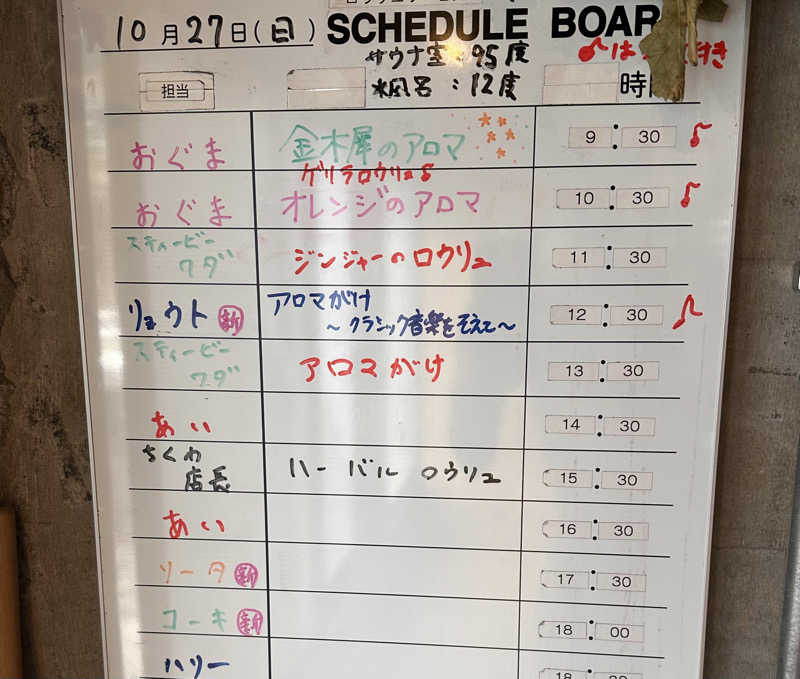 10月27日(日) SCHEDULE BOAR
サウナ室:95度
♪は き
水風呂:12度
担当 時
おぐま 金木犀のアロマ 9:30 ♪
ゲリラロウリュ♪
おぐま オレンジのアロマ 10:30 ♪
スティービー
ワダ ジンジャーのロウリュ 11:30
リョウト 新 アロマがけ 12:30 ♪
~クラシック音楽をそえて~
スティービー
ワダ アロマがけ 13:30
あい 14:30
ちくわ
店長 ハーバルロウリュ 15:30
あい 16:30
リータ 新 17:30
コーキ 新 18:00
ハリー 18:30